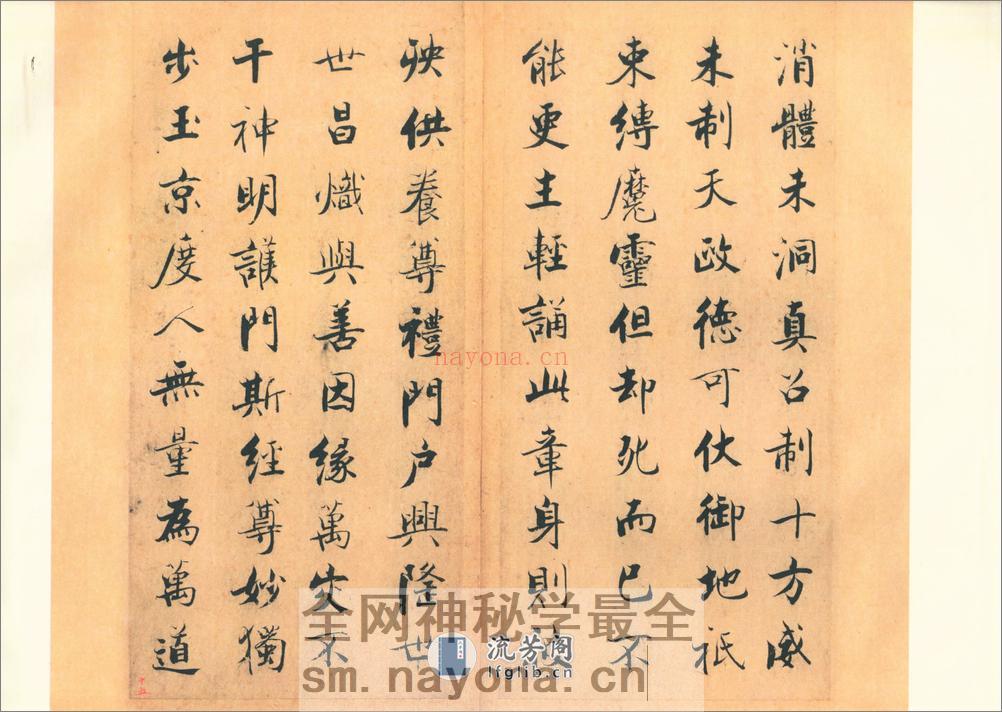 消體未洞真召制十方威
未制天政德可伏御地祇
束縛魔靈但却死而已不
能更生輕誦此章身則
殃供養尊禮門户興隆世
世昌熾與善因緣萬灾不
干神明護門斯經尊妙獨
步玉京度人無量為萬道
十五
nayona.cn
全网神秘学最全
流芳阁
lfglib.cn
sm.nayona.cn